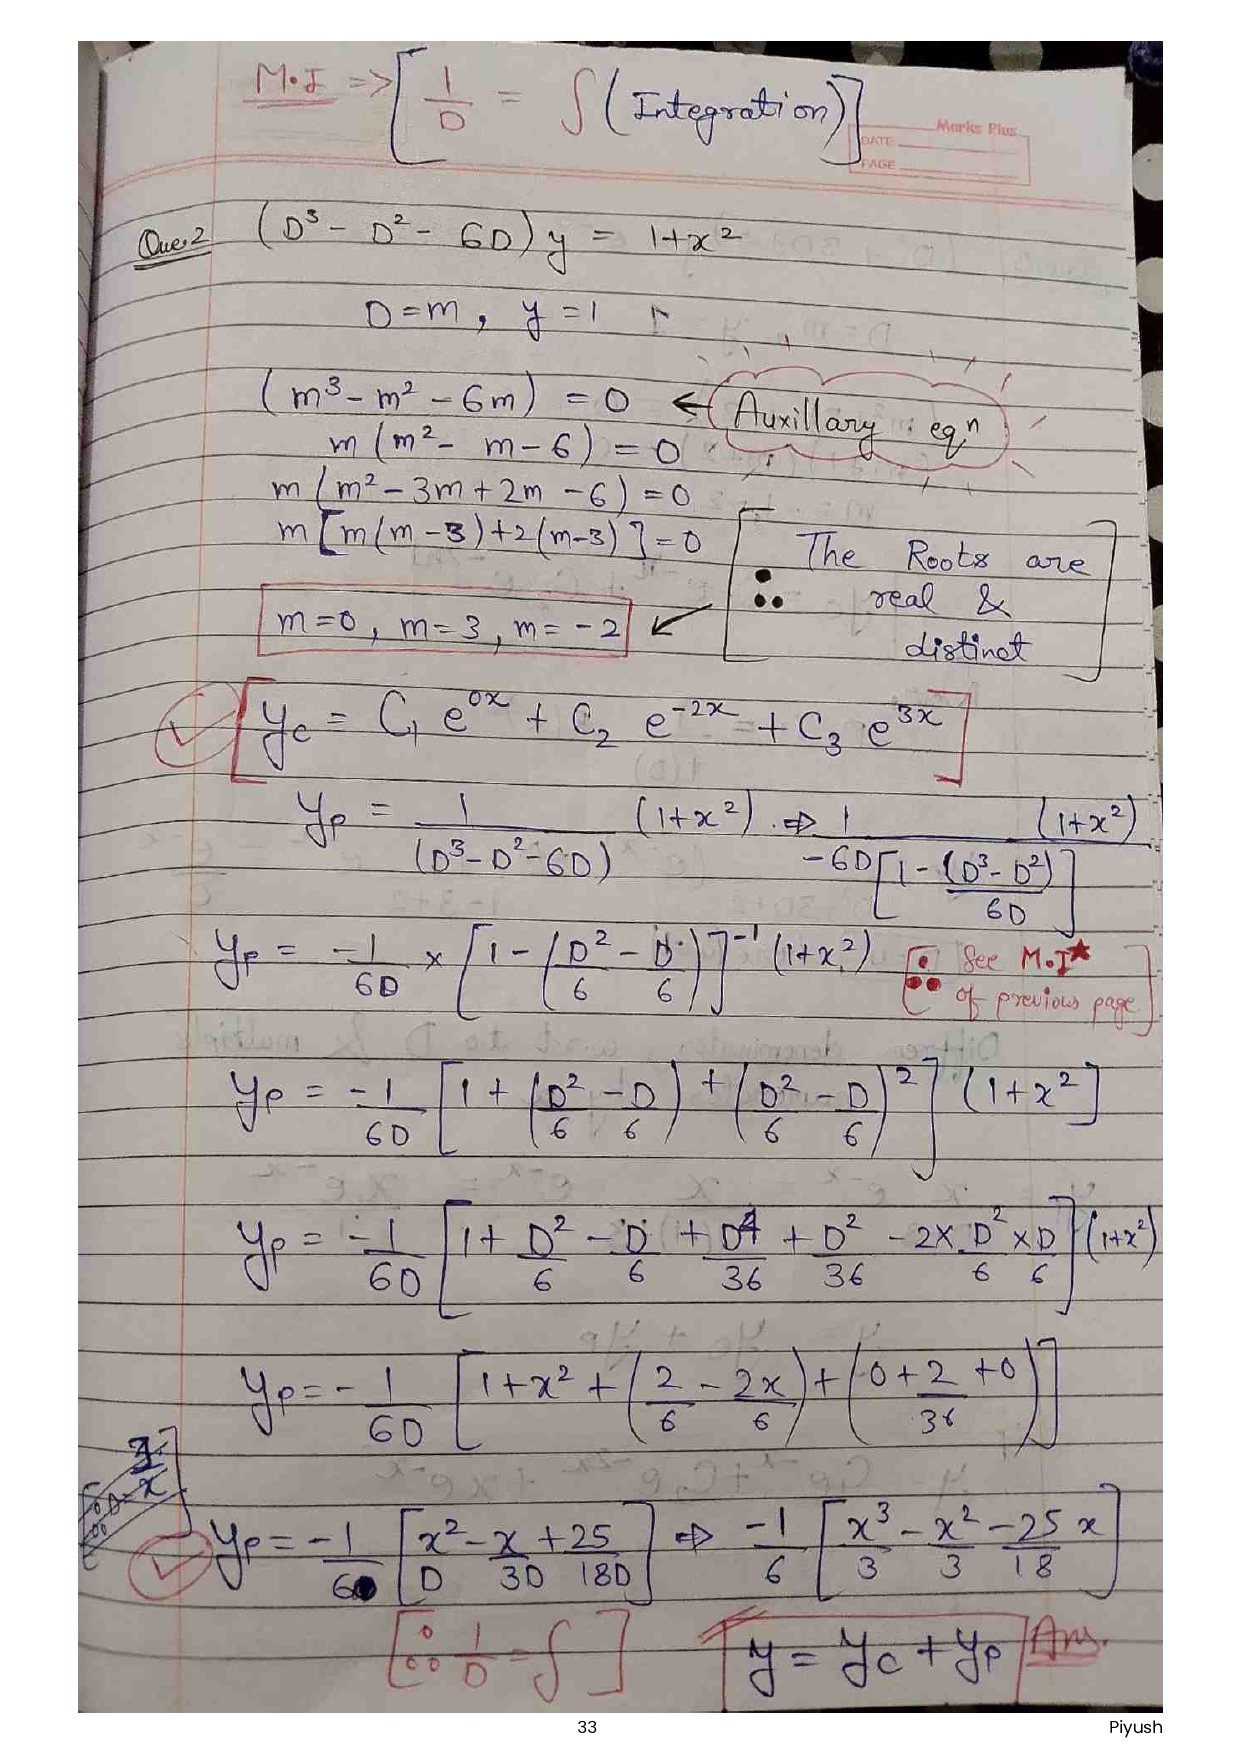 M.I => [ 1/D = ∫ (Integration) ]
Marks Plus
DATE
PAGE
Que.2 (D³ - D² - 6D) y = 1+x²
D = m, y = 1
(m³ - m² - 6m) = 0 ← Auxillary eqⁿ
m (m² - m - 6) = 0
m (m² - 3m + 2m - 6) = 0
m [m(m - 3) + 2(m-3)] = 0
[∴ The Roots are
real &
distinct]
m = 0, m = 3, m = -2
[y_c = C₁ e^{0x} + C₂ e^{-2x} + C₃ e^{3x}]
y_p = 1/(D³ - D² - 6D) (1+x²) ⇒ 1/(-6D[1 - (D³ - D²)/6D]) (1+x²)
y_p = -1/6D × [1 - (D²/6 - D/6)]^{-1} (1+x²) [∴ See M.I★
of previous page]
y_p = -1/6D [1 + (D²/6 - D/6) + (D²/6 - D/6)²] (1+x²]
y_p = -1/6D [1 + D²/6 - D/6 + D⁴/36 + D²/36 - 2 × D²/6 × D/6] (1+x²)
y_p = -1/6D [1 + x² + (2/6 - 2x/6) + (0 + 2/36 + 0)]
y_p = -1/6 [x²/D - x/3D + 25/18D] ⇒ -1/6 [x³/3 - x²/3 - 25/18 x]
[∴ 1/D = ∫]
y = y_c + y_p Ans.
33
Piyush